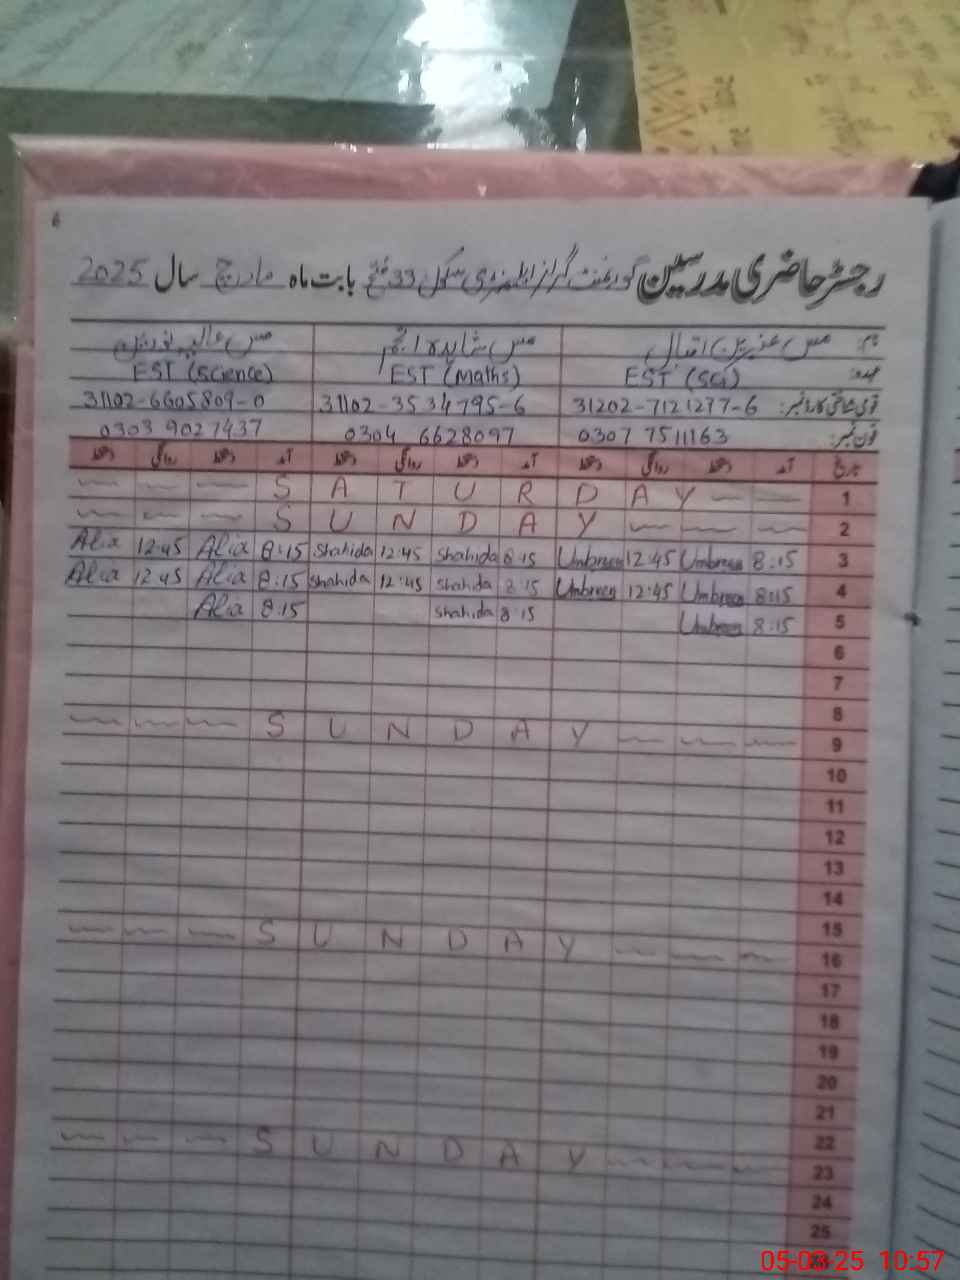 6
رجسٹر حاضری مدرسین گورنمنٹ گرلز ایلیمنٹری سکول 33 فتح بابت ماہ مارچ سال 2025
نام: مس عنبرین اقبال مس شاہدہ انجم مس عالیہ نورین
عہدہ: EST (Sci) EST (Maths) EST (Science)
قومی شناختی کارڈ نمبر: 31202-7121277-6 31102-3534795-6 31102-6605809-0
فون نمبر: 0307 7511163 0304 6628097 0303 9027437
تاریخ آمد دستخط روانگی دستخط آمد دستخط روانگی دستخط آمد دستخط روانگی دستخط
S A T U R D A Y 1
S U N D A Y 2
Alia 12:45 Alia 8:15 Shahida 12:45 Shahida 8:15 Umbreen 12:45 Umbreen 8:15 3
Alia 12:45 Alia 8:15 Shahida 12:45 Shahida 8:15 Umbreen 12:45 Umbreen 8:15 4
Alia 8:15 Shahida 8:15 Umbreen 8:15 5
6
7
8
S U N D A Y 9
10
11
12
13
14
15
S U N D A Y 16
17
18
19
20
21
22
S U N D A Y 23
24
25
26
05-03-25 10:57